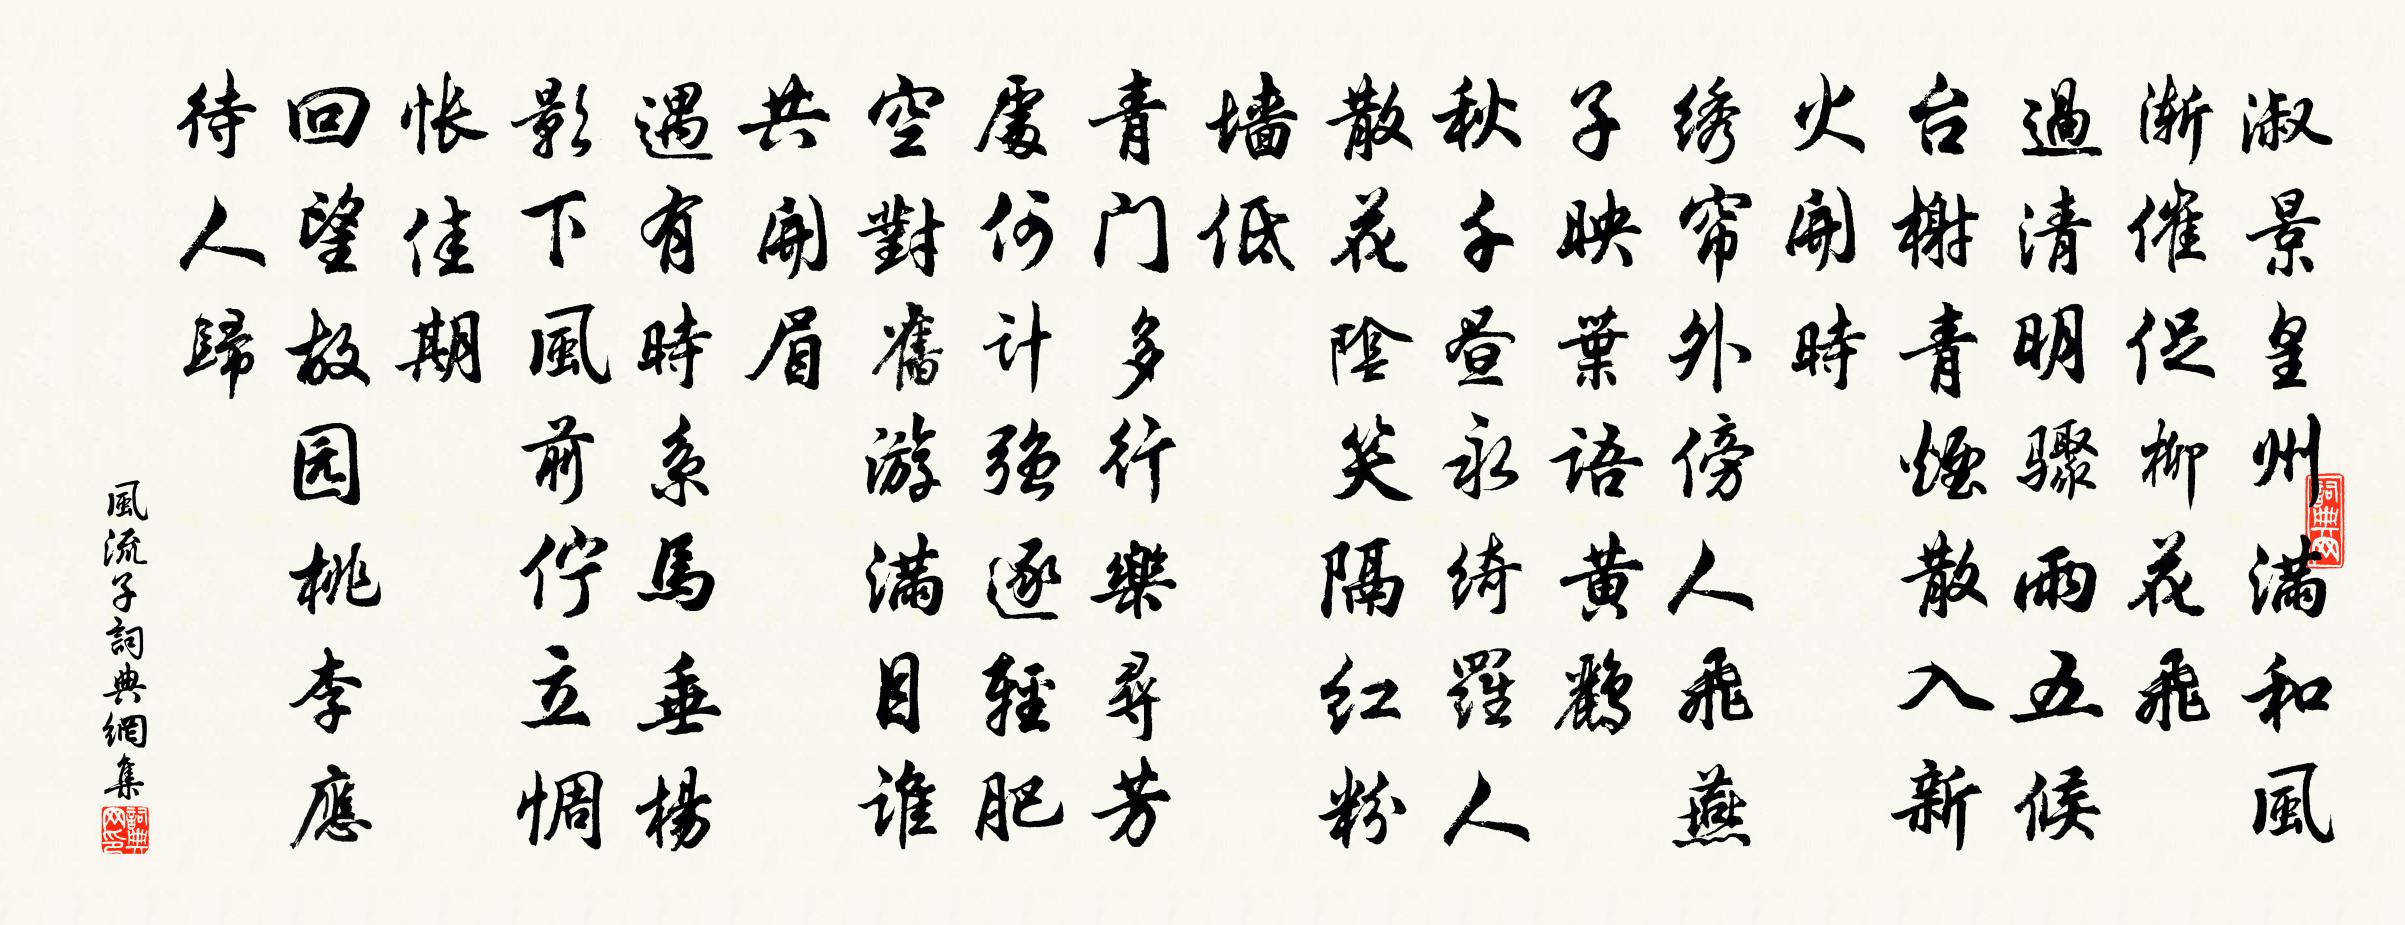 淑景皇州满和風
渐催促柳花飛
過清明驟雨五候
台榭青煙散入新
火開時
绣帘外傍人飛燕
子映葉語黄鸝
秋千昼永绮羅人
散花陰笑隔红粉
墙低
青门多行樂尋芳
處何计強逐輕肥
空對舊游满目谁
共開眉
遇有時系馬垂楊
影下風前佇立惆
怅佳期
回望故园桃李應
待人歸
風流子詞典網集
詞典网
詞典网印